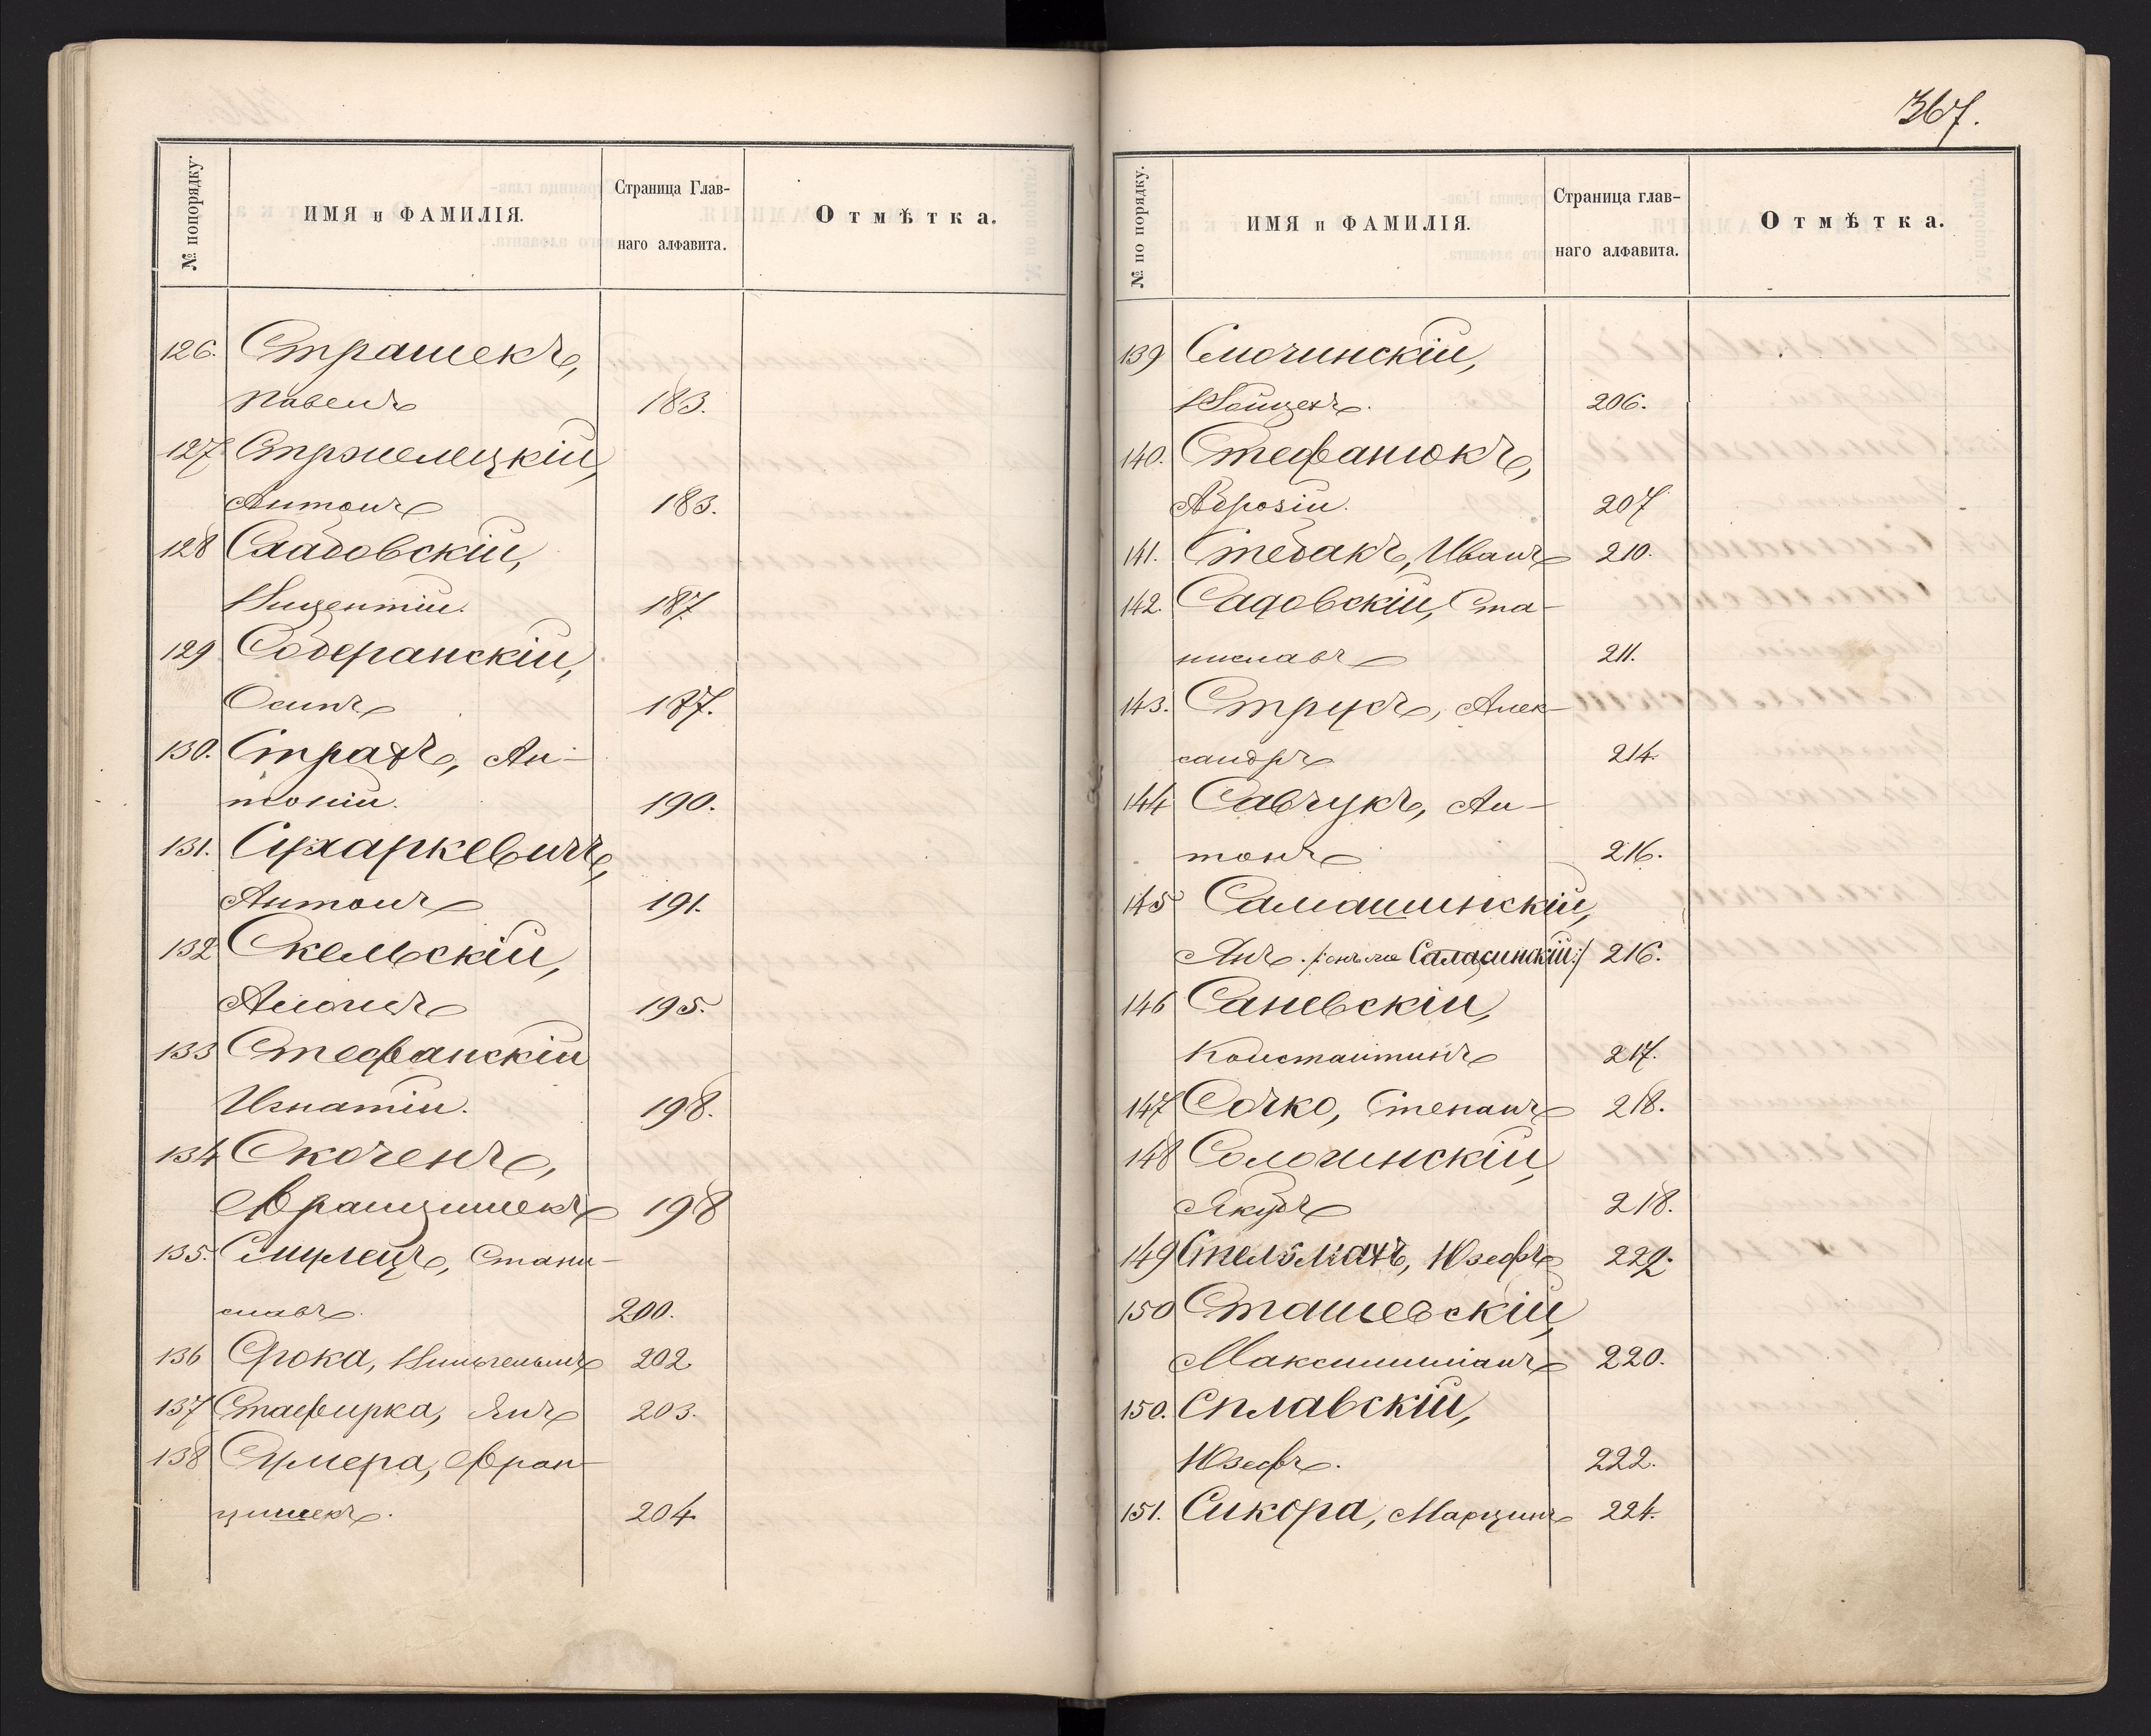 № попорядку.
ИМЯ и ФАМИЛІЯ.
Страница Глав-
наго алфавита.
Отмѣтка.
126. Страшекъ,
Павелъ 183.
127 Стржелецкій,
Антонъ 183.
128 Сладовскій,
Вицентій. 187.
129 Соберанскій,
Осипъ 187.
130. Страхъ, Ан-
тоній. 190.
131. Сухаркевичъ,
Антонъ 191.
132 Скельскій,
Алоизъ 195.
133 Стефанскій
Игнатій. 198.
134 Скоченъ,
Францишекъ 198
135. Смулецъ, Стани-
славъ. 200.
136 Срока, Вильгельмъ 202
137 Стафирка, Янъ 203.
138 Сумера, Фран-
цишекъ. 204.
367.
№ по порядку.
ИМЯ и ФАМИЛІЯ.
Страница глав-
наго алфавита.
Отмѣтка.
139 Смочинскій,
Войцехъ. 206.
140. Стефанюкъ,
207
141. Стебакъ, Иванъ 210.
142. Садовскій, Ста-
ниславъ 211.
143. Струсъ, Алек-
сандръ 214.
144 Савчукъ, Ан-
тонъ 216.
145 Самашинскій,
Янъ. /:онъ же Саласинскій:/ 216.
146 Саневскій,
Константинъ 217.
147 Сочко, Степанъ 218.
148 Солочинскій,
Якубъ 218.
149 Стельмахъ, Юзефъ 222.
150 Сташевскій,
Максимиліанъ 220.
150. Сплавскій,
Юзефъ. 222.
151. Сикора, Марцинъ 224.